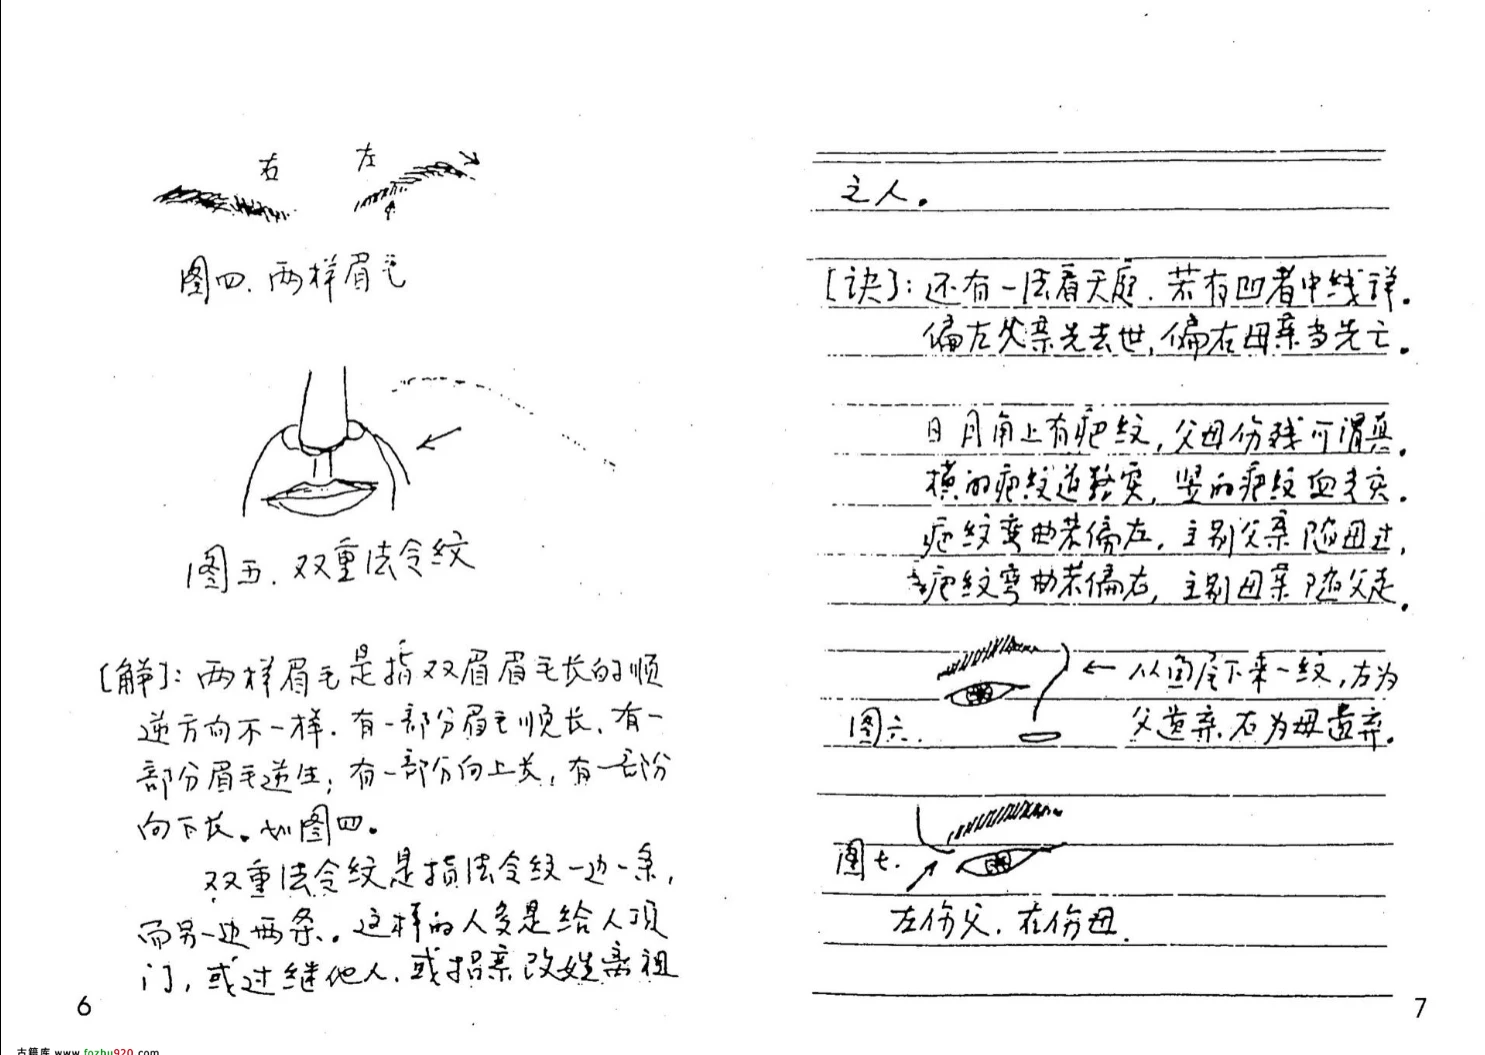 右 左
图四.两样眉毛
图五.双重法令纹
[解]:两样眉毛是指双眉眉毛长的顺
逆方向不一样.有一部分眉毛顺长、有一
部分眉毛逆生;有一部分向上长,有一部份
向下长。如图四。
双重法令纹是指法令纹一边一条,
而另一边两条。这样的人多是给人顶
门,或过继他人.或招亲改姓离祖
6
古籍库 www.fozhu920.com
之人。
[诀]:还有一法看天庭.若有凹者中线详。
偏左父亲先去世,偏右母亲当先亡。
日月角上有疤纹,父母伤残可谓真。
横的疤纹道路实,竖的疤纹血
疤纹弯曲若偏左.主别父亲随母过,
疤纹弯曲若偏右,主别母亲随父走。
从眉尾下来一纹,左为
图六. 父遗弃.右为母遗弃。
图七.
左伤父.右伤母.
7